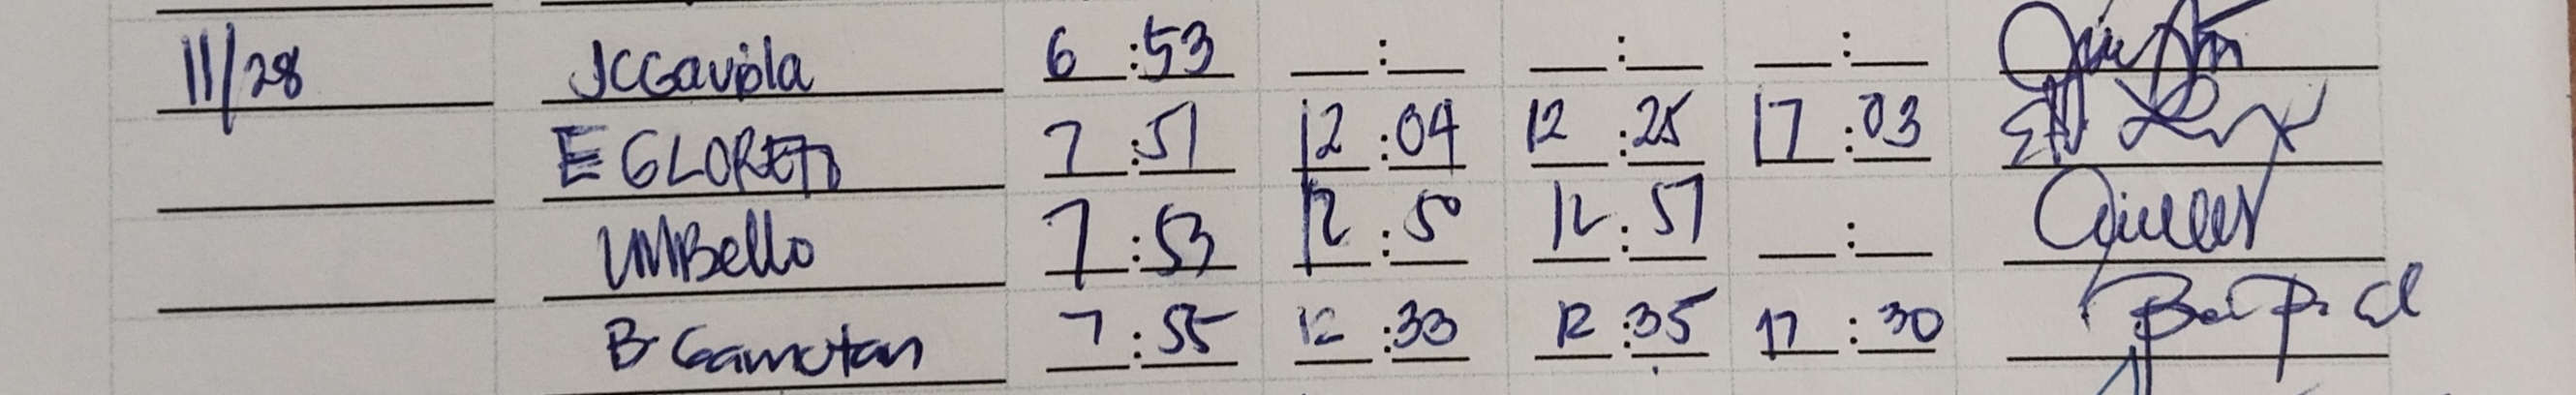 11/28 JCGaviola 6:53 __:__ __:__ __:__
E GLORETO 7:51 12:04 12:25 17:03
VMBello 7:53 12:50 12:57 __:__
B Gamotan 7:55 12:33 12:35 17:30